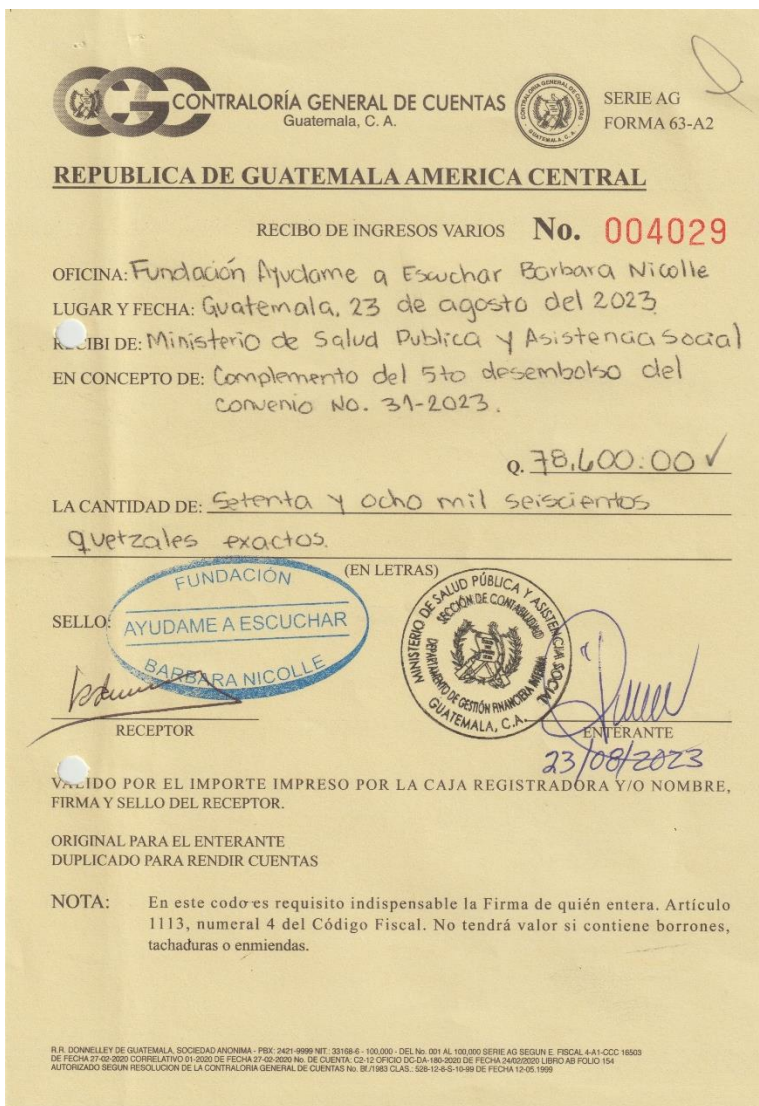 CGC CONTRALORÍA GENERAL DE CUENTAS
Guatemala, C. A.
CONTRALORIA GENERAL DE CUENTAS
GUATEMALA, C. A.
SERIE AG
FORMA 63-A2
REPUBLICA DE GUATEMALA AMERICA CENTRAL
RECIBO DE INGRESOS VARIOS No. 004029
OFICINA: Fundación Ayudame a Escuchar Barbara Nicolle
LUGAR Y FECHA: Guatemala, 23 de agosto del 2023
RECIBI DE: Ministerio de Salud Publica y Asistencia Social
EN CONCEPTO DE: Complemento del 5to desembolso del
convenio No. 31-2023.
Q. 78,600.00 ✓
LA CANTIDAD DE: Setenta y ocho mil seiscientos
quetzales exactos.
(EN LETRAS)
SELLO:
FUNDACIÓN
AYUDAME A ESCUCHAR
BARBARA NICOLLE
MINISTERIO DE SALUD PÚBLICA Y ASISTENCIA SOCIAL
SECCIÓN DE CONTABILIDAD
DEPARTAMENTO DE GESTIÓN FINANCIERA INTERNA
GUATEMALA, C.A.
RECEPTOR
ENTERANTE
23/08/2023
VALIDO POR EL IMPORTE IMPRESO POR LA CAJA REGISTRADORA Y/O NOMBRE,
FIRMA Y SELLO DEL RECEPTOR.
ORIGINAL PARA EL ENTERANTE
DUPLICADO PARA RENDIR CUENTAS
NOTA: En este codo es requisito indispensable la Firma de quién entera. Artículo
1113, numeral 4 del Código Fiscal. No tendrá valor si contiene borrones,
tachaduras o enmiendas.
R.R. DONNELLEY DE GUATEMALA, SOCIEDAD ANONIMA - PBX: 2421-9999 NIT.: 33168-6 - 100,000 - DEL No. 001 AL 100,000 SERIE AG SEGUN E. FISCAL 4-A1-CCC 16503
DE FECHA 27-02-2020 CORRELATIVO 01-2020 DE FECHA 27-02-2020 No. DE CUENTA: C2-12 OFICIO DC-DA-180-2020 DE FECHA 24/02/2020 LIBRO AB FOLIO 154
AUTORIZADO SEGUN RESOLUCION DE LA CONTRALORIA GENERAL DE CUENTAS No. Bf./1983 CLAS.: 528-12-8-S-10-99 DE FECHA 12-05.1999